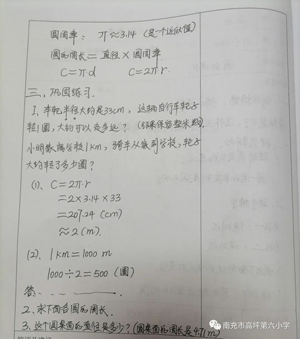 圆周率: π≈3.14 (是一个近似值)
圆的周长 = 直径 × 圆周率
C=πd C=2πr
三、巩固练习.
1、车轮半径大约是33cm, 这辆自行车轮子
转1圈, 大约可以走多远? (结果保留整米数)
小明家离学校1km, 骑车从家到学校, 轮子
大约转了多少圈?
(1). C=2πr
=2×3.14×33
=207.24 (cm)
≈2 (m).
(2). 1km=1000 m
1000÷2=500 (圈)
答:
2. 求下面各圆的周长.
3. 这个圆桌面的直径是多少? (圆桌面的周长是4.71m)
南充市高坪第六小学